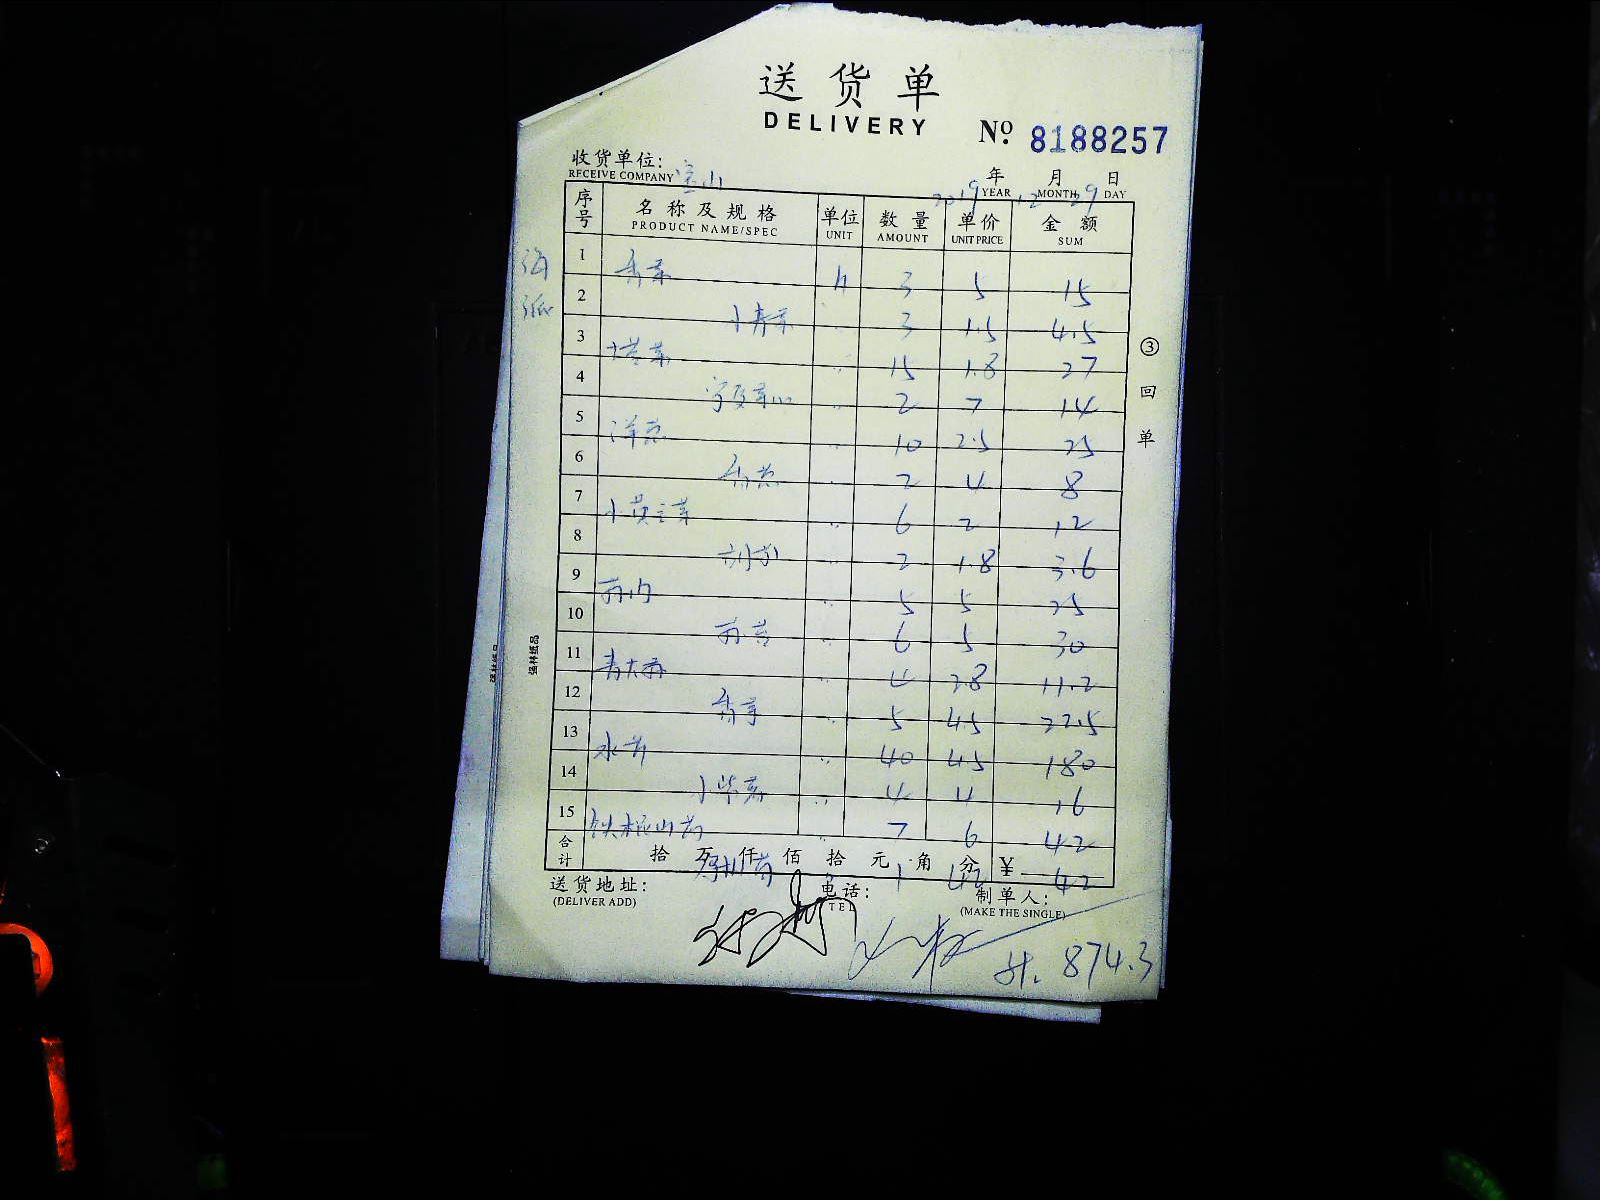 送货单
DELIVERY
№ 8188257
收货单位: 宝山
RECEIVE COMPANY
2019 年 12 月 29 日
YEAR MONTH DAY
序号 名称及规格 单位 数量 单价 金额
PRODUCT NAME/SPEC UNIT AMOUNT UNIT PRICE SUM
1 香菜 斤 3 5 15
2 小青菜 〃 3 1.5 4.5
3 塔菜 〃 15 1.8 27
4 〃 2 7 14
5 洋葱 〃 10 2.5 25
6 香葱 〃 2 4 8
7 小黄豆芽 〃 6 2 12
8 〃 2 1.8 3.6
9 〃 5 5 25
10 〃 6 5 30
11 〃 4 2.8 11.2
12 香芋 〃 5 4.5 22.5
13 水芹 〃 40 4.5 180
14 〃 4 4 16
15 铁棍山药 〃 7 6 42
合计 拾 万 仟 佰 拾 元 角 分 ¥
1 42 42
③回单
强林纸品
强林纸品
送货地址: 电话: 制单人:
(DELIVER ADD) TEL (MAKE THE SINGLE)
计. 874.3